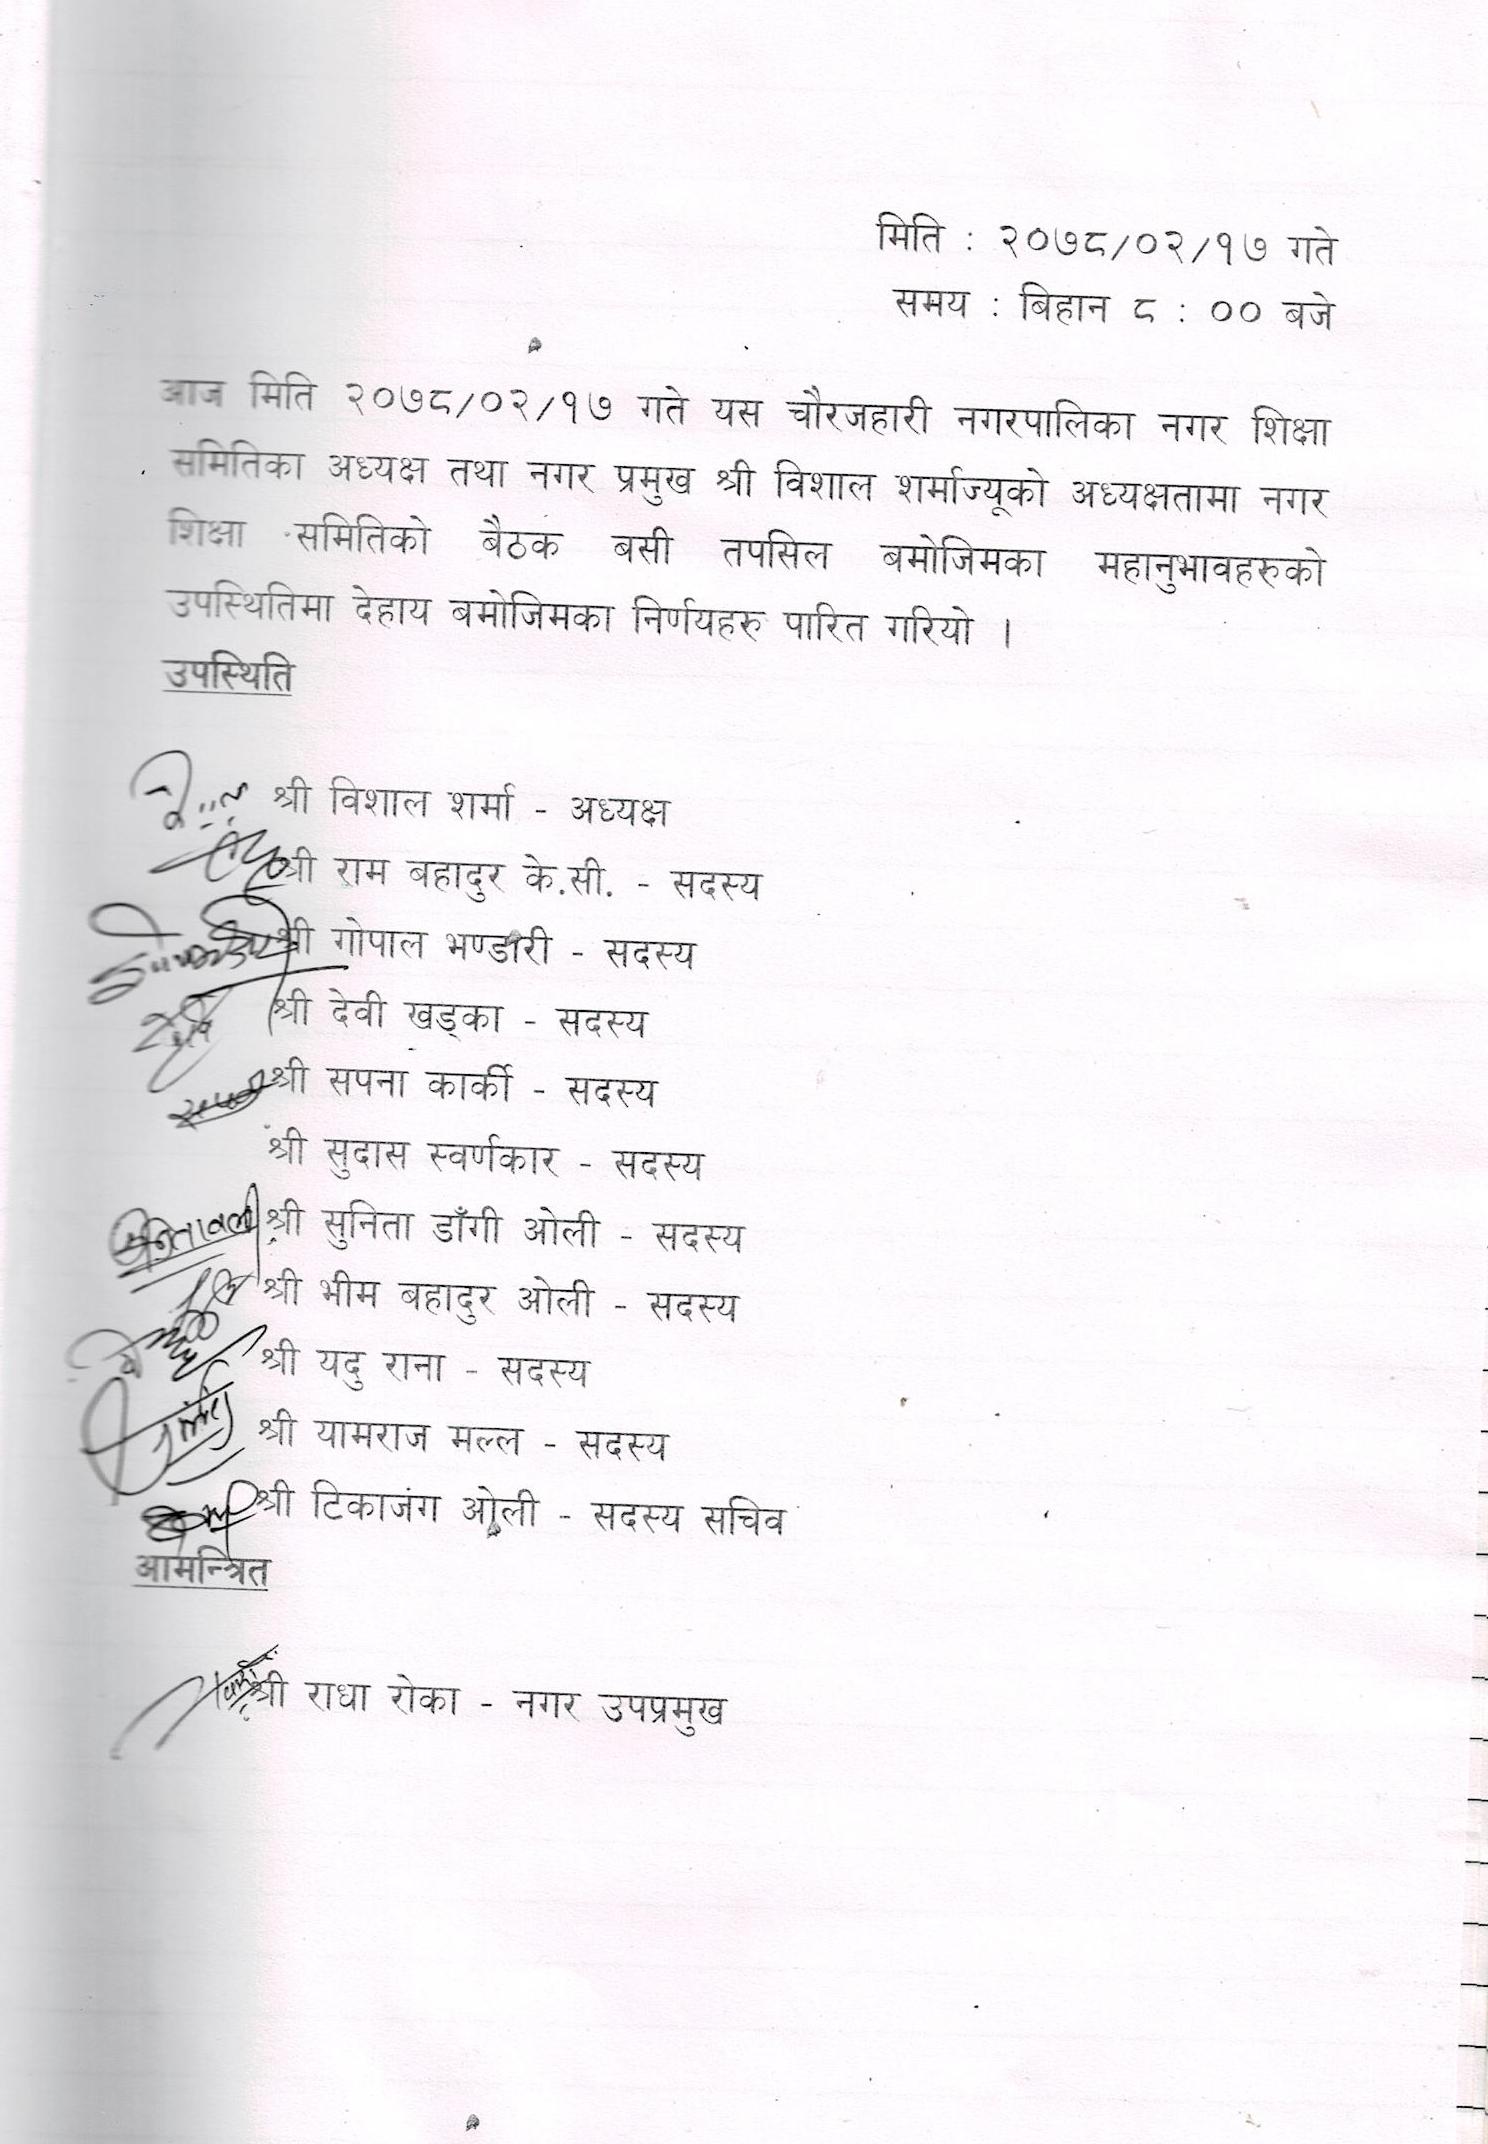 मिति : २०७८/०२/१७ गते
समय : बिहान ८ : ०० बजे
आज मिति २०७८/०२/१७ गते यस चौरजहारी नगरपालिका नगर शिक्षा
समितिका अध्यक्ष तथा नगर प्रमुख श्री विशाल शर्माज्यूको अध्यक्षतामा नगर
शिक्षा समितिको बैठक बसी तपसिल बमोजिमका महानुभावहरुको
उपस्थितिमा देहाय बमोजिमका निर्णयहरु पारित गरियो ।
उपस्थिति
श्री विशाल शर्मा - अध्यक्ष
श्री राम बहादुर के.सी. - सदस्य
श्री गोपाल भण्डारी - सदस्य
श्री देवी खड्का - सदस्य
श्री सपना कार्की - सदस्य
श्री सुदास स्वर्णकार - सदस्य
श्री सुनिता डाँगी ओली - सदस्य
श्री भीम बहादुर ओली - सदस्य
श्री यदु राना - सदस्य
श्री यामराज मल्ल - सदस्य
श्री टिकाजंग ओली - सदस्य सचिव
आमन्त्रित
श्री राधा रोका - नगर उपप्रमुख